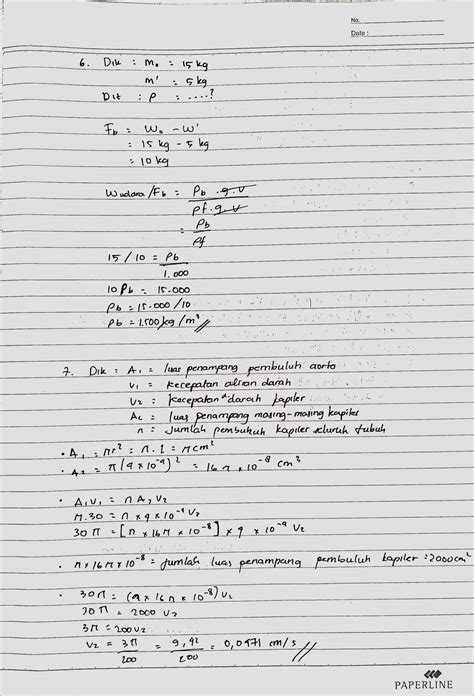 No.
Date :
6. Dik : m₀ = 15 kg
m' = 5 kg
Dit : ρ = ....?
Fb = W₀ - W'
= 15 kg - 5 kg
= 10 kg
Wudara/Fb = ρb . g . v / ρf . g . v
= ρb / ρf
15 / 10 = ρb / 1.000
10 ρb = 15.000
ρb = 15.000 / 10
ρb = 1.500 kg / m³ //
7. Dik : A₁ = luas penampang pembuluh aorta
V₁ = kecepatan aliran darah
V₂ = kecepatan darah kapiler
A₂ = luas penampang masing-masing kapiler
n = jumlah pembuluh kapiler seluruh tubuh
• A₁ = πr² = π . 1 = π cm²
• A₂ = π (4 x 10⁻⁴)² = 16 π x 10⁻⁸ cm²
• A₁V₁ = n A₂ V₂
π.30 = n x 4 x 10⁻⁴ V₂
30 π = [n x 16π x 10⁻⁸] x 4 x 10⁻⁴ V₂
• n x 16π x 10⁻⁸ = jumlah luas penampang pembuluh kapiler = 2000 cm²
• 30π = (n x 16 π x 10⁻⁸) V₂
30 π = 2000 V₂
3π = 200 V₂
V₂ = 3π / 200 = 9,42 / 200 = 0,0471 cm / s //
PAPERLINE